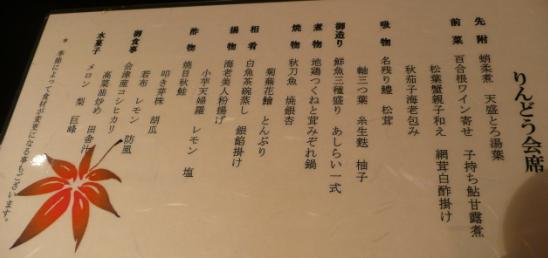 りんどう会席
先附 蛸柔煮 天盛とろ湯葉
前菜 百合根ワイン寄せ 子持ち鮎甘露煮
松葉蟹親子和え 網茸白酢掛け
秋茄子海老包み
吸物 名残り鱧 松茸
軸三つ葉 糸生麩 柚子
御造り 鮮魚三種盛り あしらい一式
煮物 地鶏つくねと茸みぞれ鍋
焼物 秋刀魚 焼銀杏
菊蕪花鱠 とんぶり
相肴 白魚茶碗蒸し 銀餡掛け
揚物 海老美人粉揚げ
小芋天婦羅 レモン 塩
酢物 焼目秋鮭
叩き芽株 胡瓜
若布 レモン 防風
御食事 会津産コシヒカリ
高菜油炒め 田舎汁
水菓子 メロン 梨 巨峰
* 季節によって食材が変更になる事もございます。